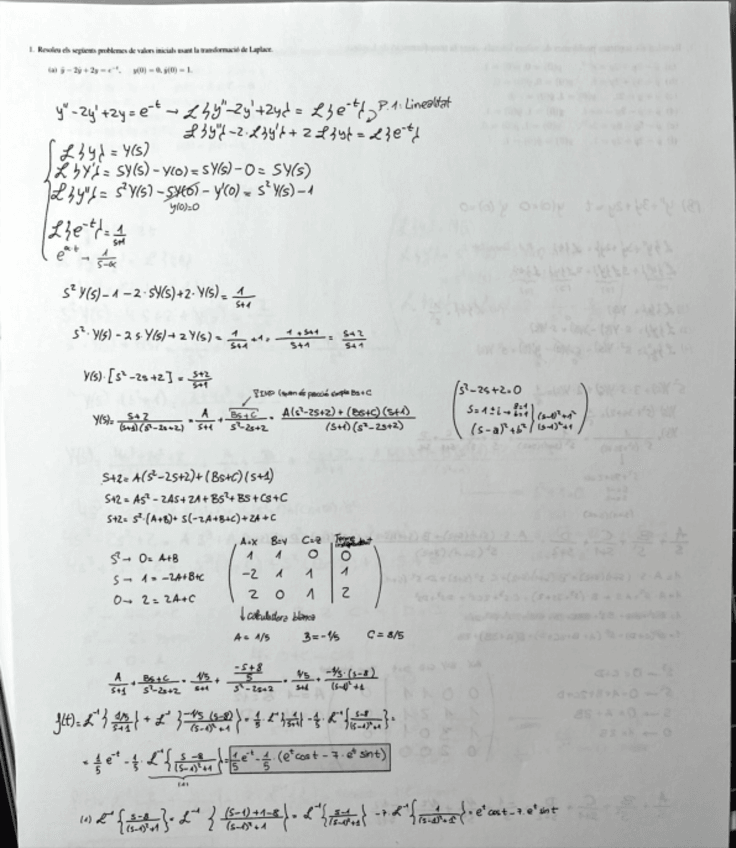 1. Resoleu els següents problemes de valors inicials usant la transformació de Laplace.
(a) ÿ − 2ẏ + 2y = e^{-t}, y(0) = 0, ẏ(0) = 1.
y'' - 2y' + 2y = e^{-t} → L{y'' - 2y' + 2y} = L{e^{-t}} P.1: Linealitat
L{y''} - 2·L{y'} + 2 L{y} = L{e^{-t}}
L{y} = Y(s)
L{y'} = SY(s) - Y(0) = SY(s) - 0 = SY(s)
L{y''} = s² Y(s) - SY(0) - Y'(0) = s² Y(s) - 1
y(0)=0
L{e^{-t}} = 1/(s+1)
e^{αt} → 1/(s-α)
s² Y(s) - 1 - 2·SY(s) + 2·Y(s) = 1/(s+1)
s²·Y(s) - 2s·Y(s) + 2Y(s) = 1/(s+1) + 1, (1+s+1)/(s+1) = (s+2)/(s+1)
Y(s)·[s² - 2s + 2] = (s+2)/(s+1)
Y(s) = (s+2)/((s+1)(s²-2s+2)) = A/(s+1) + (Bs+C)/(s²-2s+2) = (A(s²-2s+2) + (Bs+C)(s+1))/((s+1)(s²-2s+2))
s²-2s+2=0
s = 1±i → a=1 b=1 (s-1)²+1²
(s-a)²+b² (s-1)²+1
s+2 = A(s²-2s+2) + (Bs+C)(s+1)
s+2 = As² - 2As + 2A + Bs² + Bs + Cs + C
s+2 = s²·(A+B) + s(-2A+B+C) + 2A+C
A=X B=Y C=Z
s² → 0 = A+B 1 1 0 0
s → 1 = -2A+B+C -2 1 1 1
0 → 2 = 2A+C 2 0 1 2
↓ calculadora
A = 1/5 B = -1/5 C = 8/5
A/(s+1) + (Bs+C)/(s²-2s+2) = (1/5)/(s+1) + ((-s+8)/5)/(s²-2s+2) = (1/5)/(s+1) + (-1/5·(s-8))/((s-1)²+1)
y(t) = L⁻¹{(1/5)/(s+1)} + L⁻¹{(-1/5 (s-8))/((s-1)²+1)} = 1/5·L⁻¹{1/(s+1)} - 1/5·L⁻¹{(s-8)/((s-1)²+1)} =
= 1/5 e^{-t} - 1/5·L⁻¹{(s-8)/((s-1)²+1)} = 1/5 e^{-t} - 1/5·(e^t cost - 7·e^t sint)
(*)
(*) L⁻¹{(s-8)/((s-1)²+1)} = L⁻¹{((s-1)+1-8)/((s-1)²+1)} = L⁻¹{(s-1)/((s-1)²+1)} - 7·L⁻¹{1/((s-1)²+1²)} = e^t cost - 7·e^t sint